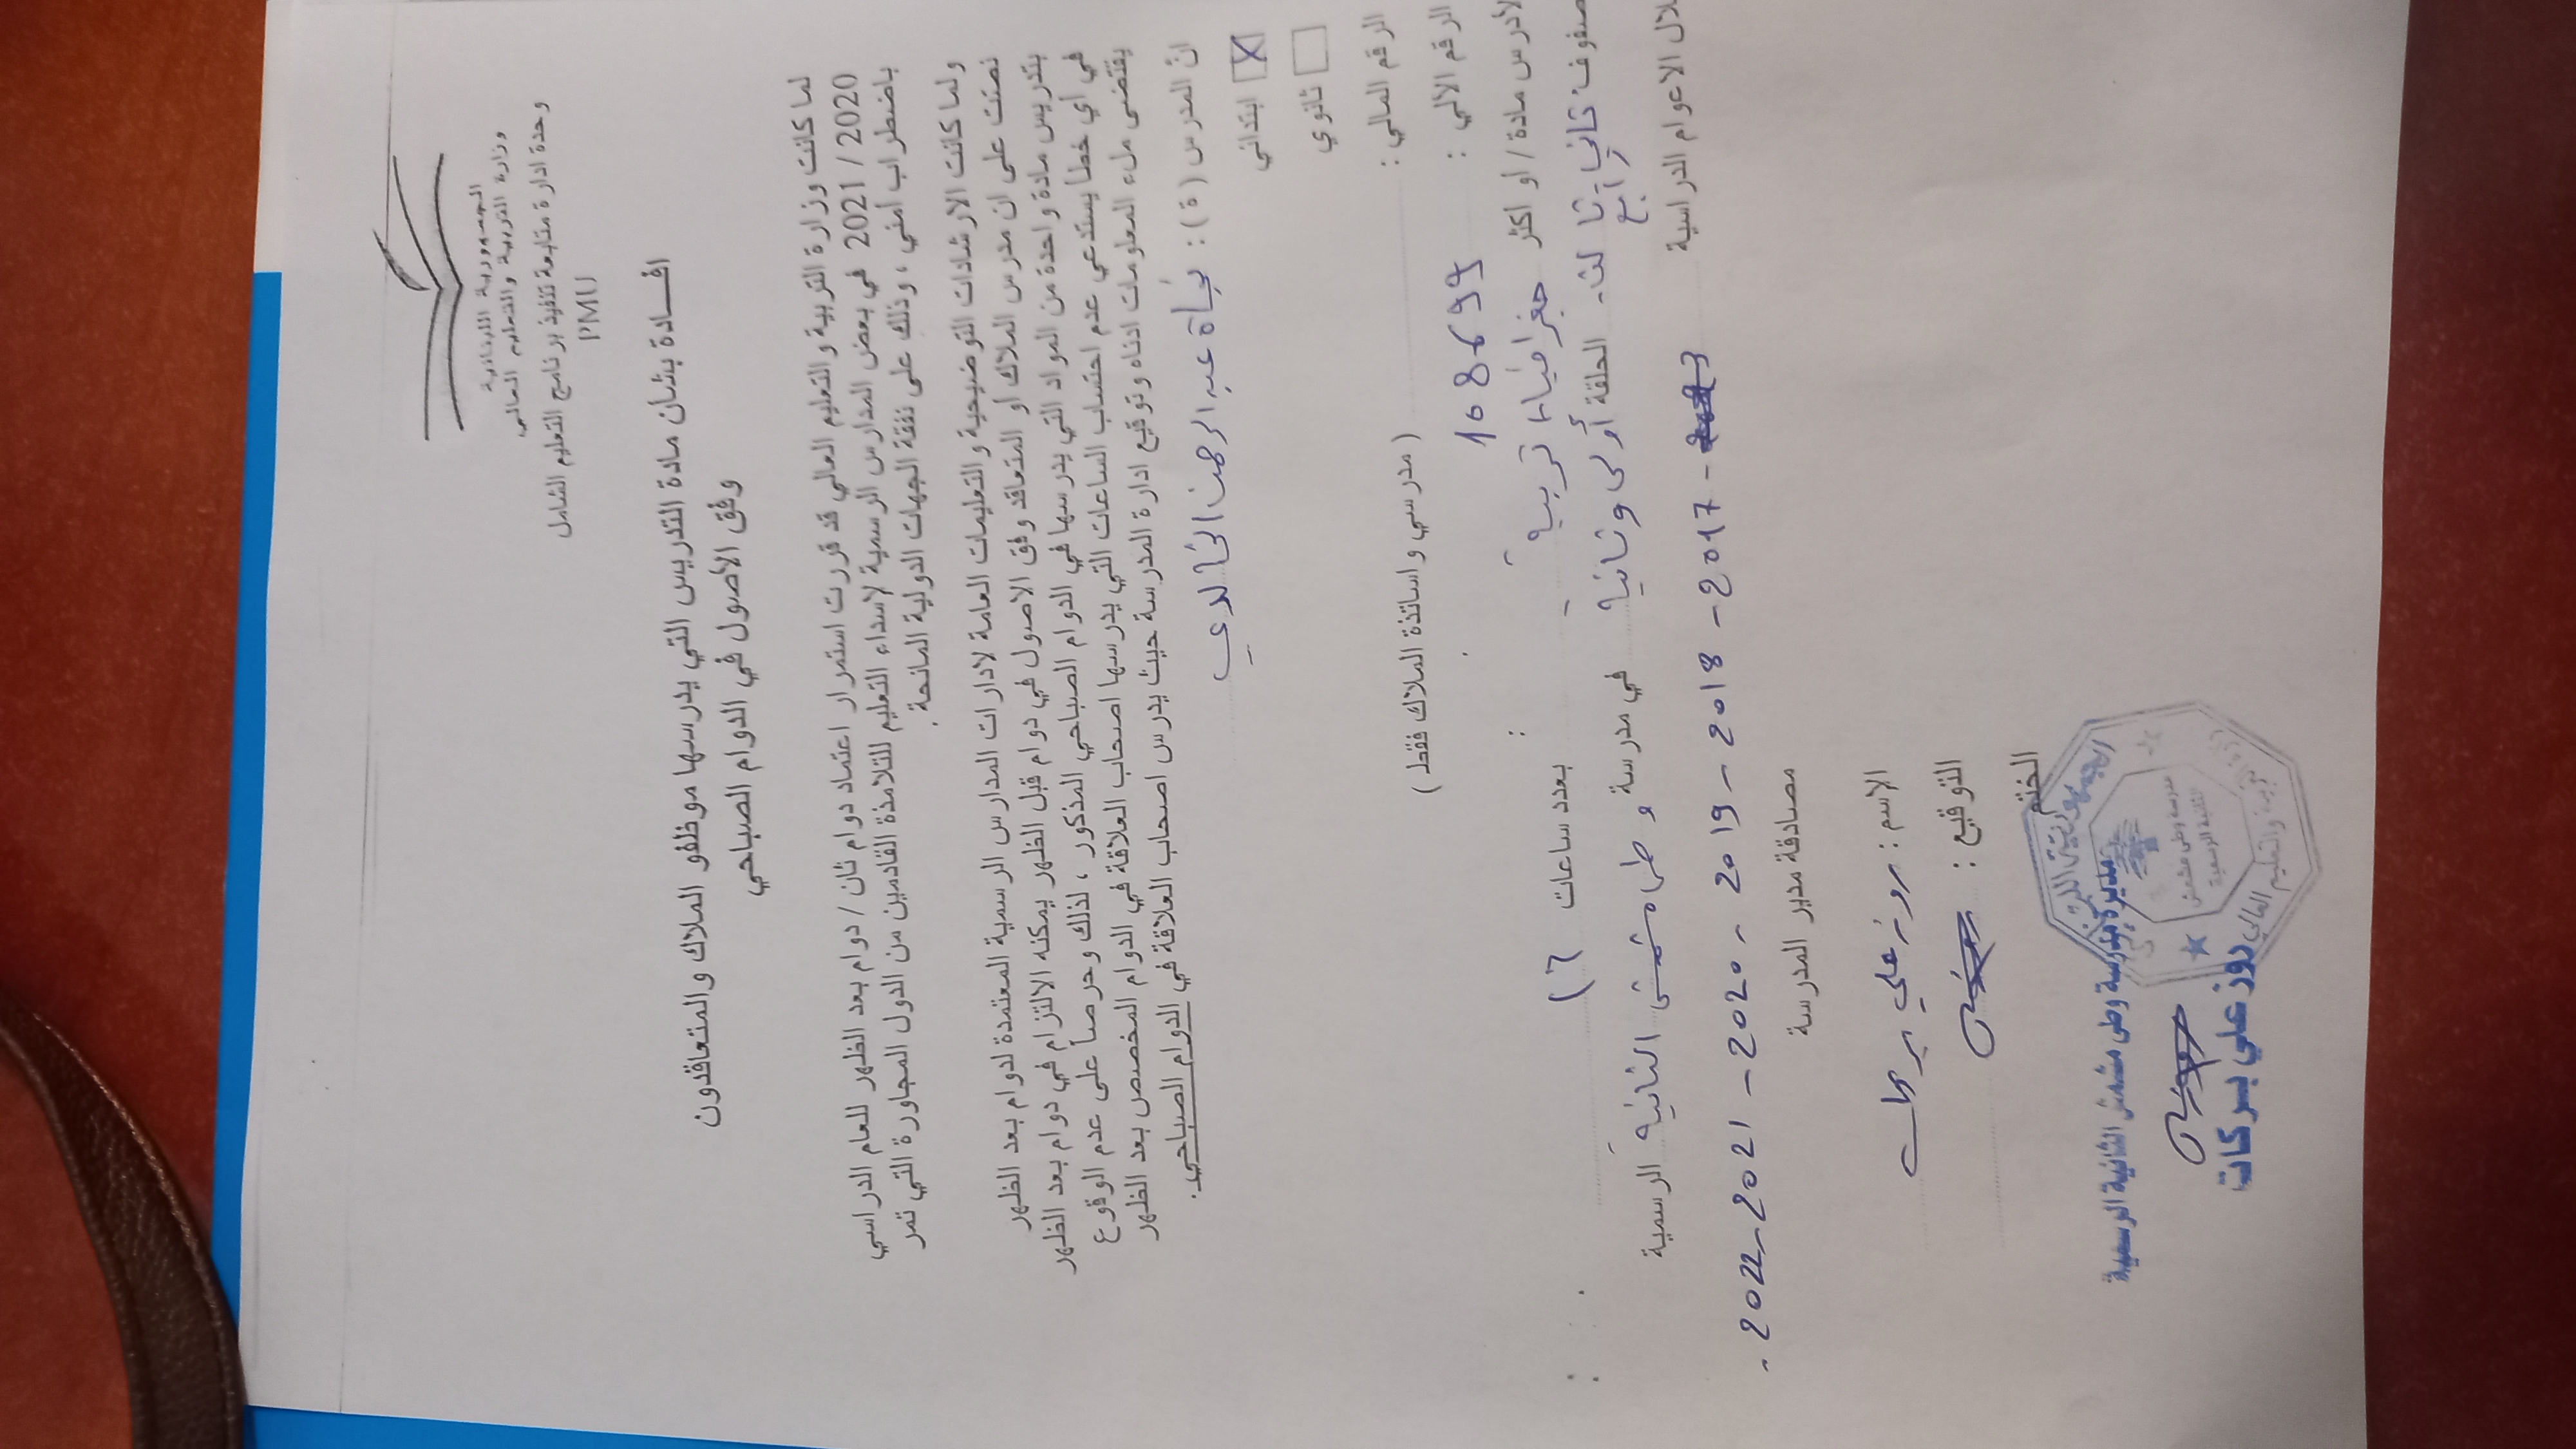 الجمهورية اللبنانية
وزارة التربية والتعليم العالي
وحدة ادارة متابعة تنفيذ برنامج التعليم الشامل
PMU
افادة بشأن مادة التدريس التي يدرسها موظفو الملاك والمتعاقدون
وفق الأصول في الدوام الصباحي
لما كانت وزارة التربية والتعليم العالي قد قررت استمرار اعتماد دوام ثان / دوام بعد الظهر للعام الدراسي
2020 / 2021 في بعض المدارس الرسمية لإسداء التعليم للتلامذة القادمين من الدول المجاورة التي تمر
باضطراب أمني ، وذلك على نفقة الجهات الدولية المانحة.
ولما كانت الارشادات التوضيحية والتعليمات العامة لادارات المدارس الرسمية المعتمدة لدوام بعد الظهر
نصت على ان مدرس الملاك او المتعاقد وفق الاصول في دوام قبل الظهر يمكنه الالتزام في دوام بعد الظهر
بتدريس مادة واحدة من المواد التي يدرسها في الدوام الصباحي المذكور ، لذلك وحرصاً على عدم الوقوع
في أي خطأ يستدعي عدم احتساب الساعات التي يدرسها اصحاب العلاقة في الدوام المخصص بعد الظهر
يقتضى ملء المعلومات ادناه وتوقيع ادارة المدرسة حيث يدرس اصحاب العلاقة في الدوام الصباحي.
ان المدرس (ة) : عبد الرحمن الخالدي
ابتدائي X
ثانوي
الرقم المالي : ( مدرسي واساتذة الملاك فقط )
الرقم الالي : 108699
لأدرس مادة / او اكثر جغرافيا، تربية : بعدد ساعات
صفوف ثاني - ثالث - رابع الحلقة أولى وثانية في مدرسة وطى مشمش الثانية الرسمية
لال الاعوام الدراسية 2017 - 2018 - 2019 - 2020 - 2021 - 2022 -
مصادقة مدير المدرسة
الاسم : روز علي بركات
التوقيع :
الختم
الجمهورية اللبنانية
مدرسة وطى مشمش
الثانية الرسمية
تربية والتعليم العالي
مديرة مدرسة وطى مشمش الثانية الرسمية
روز علي بركات